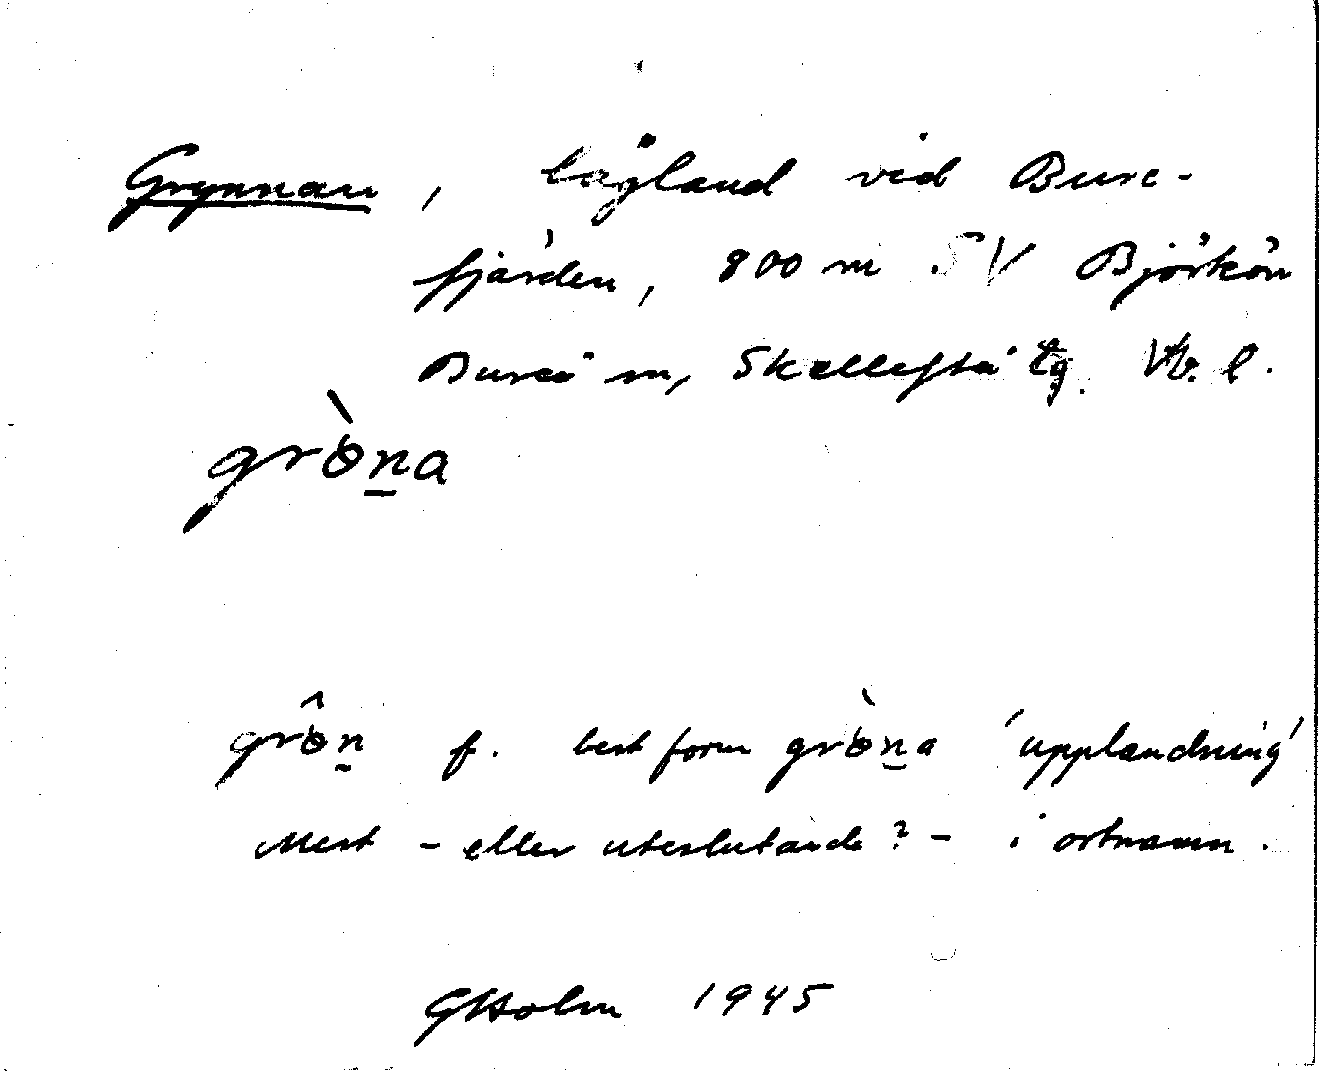 Grynnan, lågland vid Bure-
fjärden, 800 m SV Björkön
Bureå sn, Skellefteå tg. Vb. l.
grò̱na
grôn̲ f. best form gròn̲a 'upplandning'
Mest - eller uteslutande? - i ortnamn.
GHolm 1945